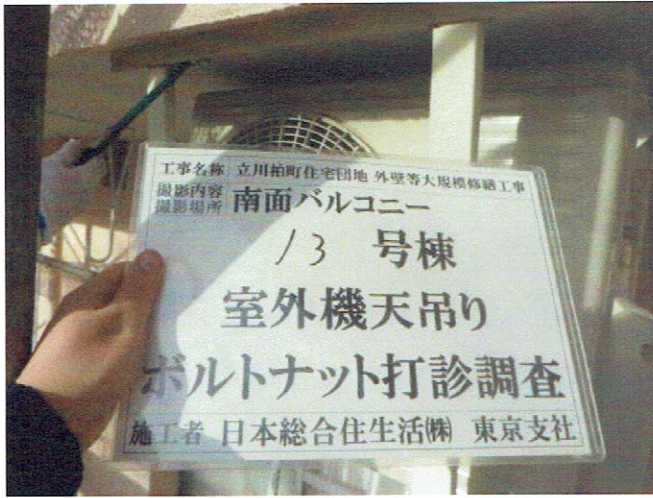 工事名称 立川柏町住宅団地 外壁等大規模修繕工事
撮影内容
撮影場所 南面バルコニー
13 号棟
室外機天吊り
ボルトナット打診調査
施工者 日本総合住生活㈱ 東京支社